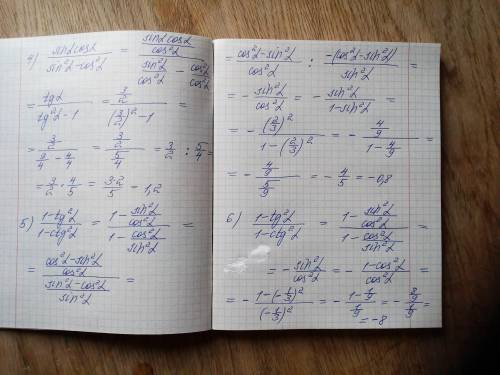 4) (sin α cos α)/(sin²α - cos²α) = ((sin α cos α)/(cos²α))/((sin²α)/(cos²α) - (cos²α)/(cos²α)) =
= (tg α)/(tg²α - 1) = (3/2)/((3/2)² - 1) =
= (3/2)/(9/4 - 4/4) = (3/2)/(5/4) = 3/2 : 5/4 =
= 3/2 · 4/5 = (3·2)/5 = 1,2
5) (1 - tg²α)/(1 - ctg²α) = (1 - (sin²α)/(cos²α))/(1 - (cos²α)/(sin²α)) =
= ((cos²α - sin²α)/(cos²α))/((sin²α - cos²α)/(sin²α)) =
= (cos²α - sin²α)/(cos²α) : (-(cos²α - sin²α))/(sin²α) =
= - (sin²α)/(cos²α) = - (sin²α)/(1 - sin²α) =
= - ((2/3)²)/(1 - (2/3)²) = - (4/9)/(1 - 4/9) =
= - (4/9)/(5/9) = - 4/5 = -0,8
6) (1 - tg²α)/(1 - ctg²α) = (1 - (sin²α)/(cos²α))/(1 - (cos²α)/(sin²α)) =
= - (sin²α)/(cos²α) = - (1 - cos²α)/(cos²α) =
= - (1 - (-1/3)²)/((-1/3)²) = - (1 - 1/9)/(1/9) = - (8/9)/(1/9) =
= -8